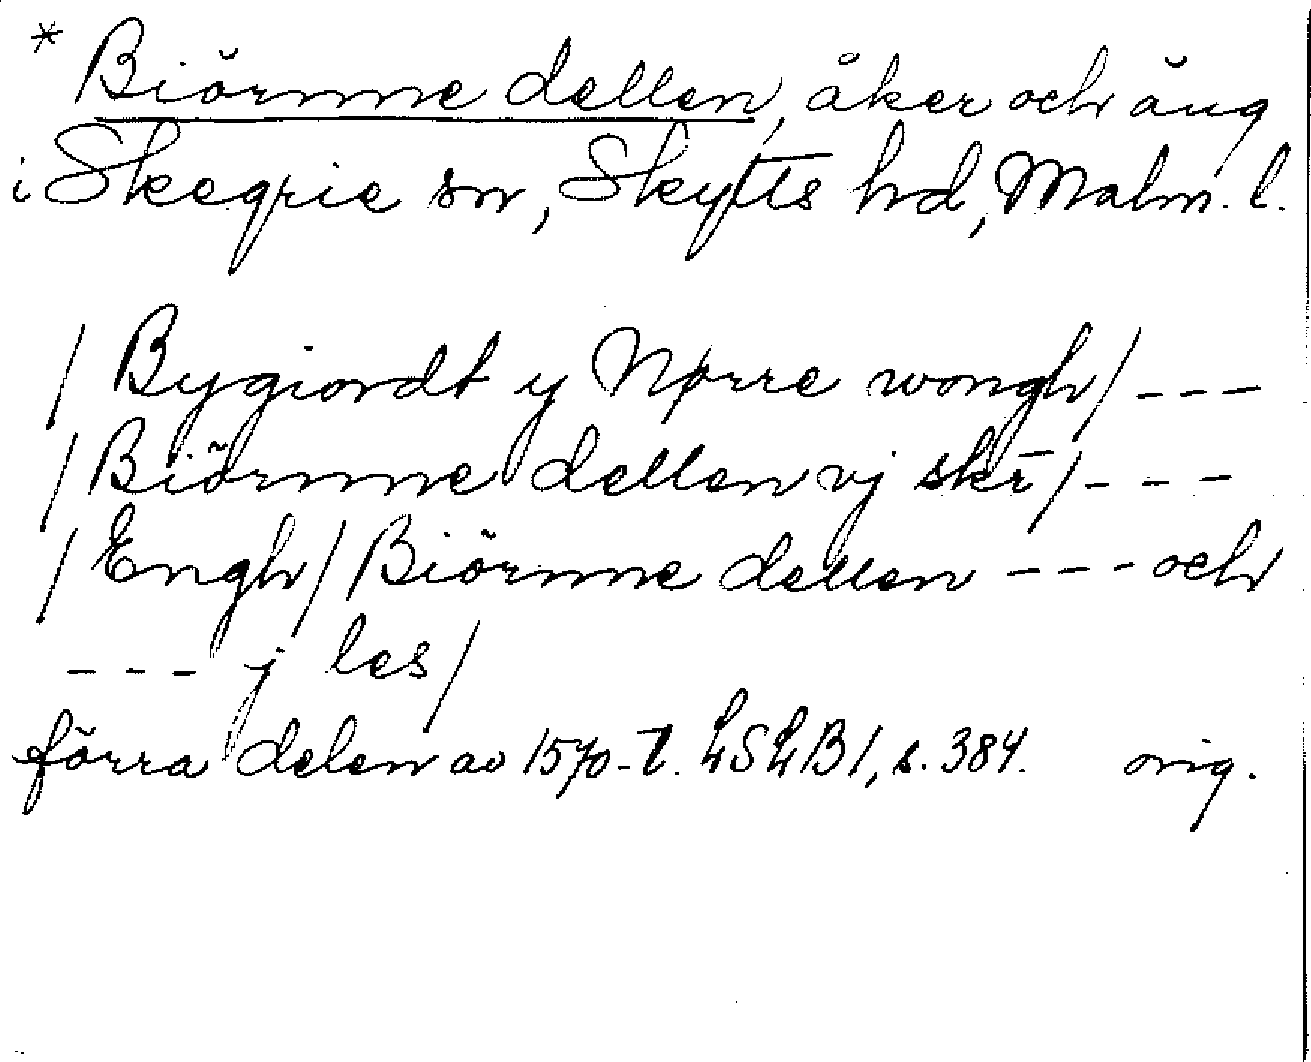 * Biörnne dellen, åker och äng
i Skegrie sn, Skytts hd, Malm. l.
/ Bygiordt y Nørre wongh / ---
/ Biörnne dellen vj skr̄ / ---
/ Engh / Biörnne dellen --- och
--- j les /
förra delen av 1570-t. LSLB 1, s. 384. orig.